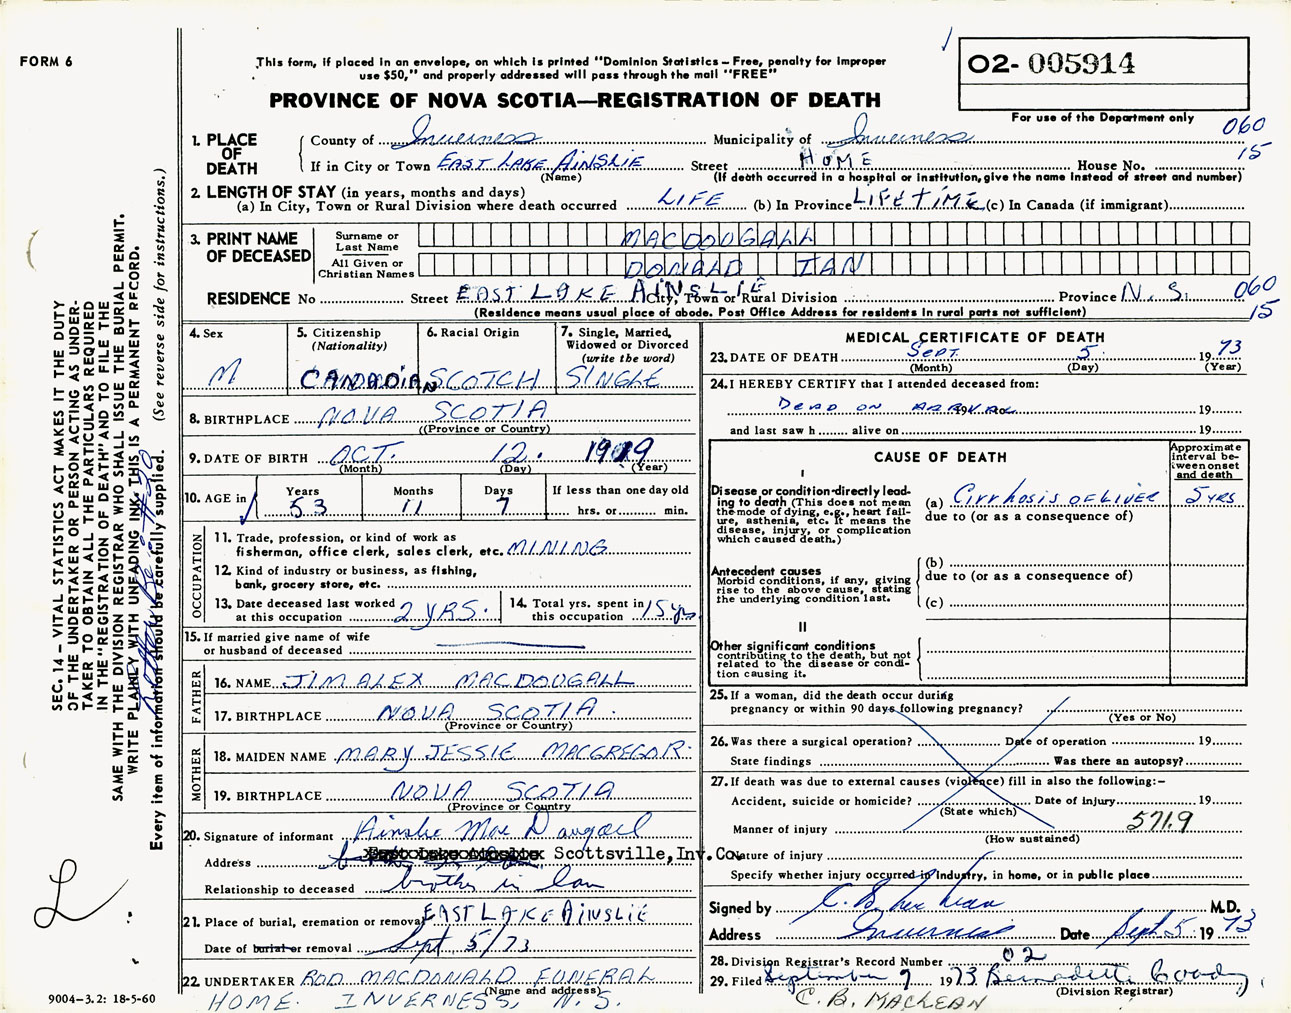 FORM 6
This form, if placed in an envelope, on which is printed "Dominion Statistics – Free, penalty for improper
use $50," and properly addressed will pass through the mail "FREE"
O2- 005914
For use of the Department only
PROVINCE OF NOVA SCOTIA—REGISTRATION OF DEATH
060
15
1. PLACE OF DEATH
County of Inverness Municipality of Inverness
If in City or Town EAST LAKE AINSLIE Street HOME House No.
(Name) (If death occurred in a hospital or institution, give the name instead of street and number)
2. LENGTH OF STAY (in years, months and days)
(a) In City, Town or Rural Division where death occurred LIFE (b) In Province LIFETIME (c) In Canada (if immigrant)
3. PRINT NAME OF DECEASED
Surname or Last Name MACDOUGALL
All Given or Christian Names DONALD IAN
RESIDENCE No Street EAST LAKE AINSLIE City, Town or Rural Division Province N.S. 060
(Residence means usual place of abode. Post Office Address for residents in rural parts not sufficient) 15
4. Sex M
5. Citizenship (Nationality) CANADIAN
6. Racial Origin SCOTCH
7. Single, Married, Widowed or Divorced (write the word) SINGLE
8. BIRTHPLACE NOVA SCOTIA
((Province or Country)
9. DATE OF BIRTH OCT. 12. 1919
(Month) (Day) (Year)
10. AGE in Years 53 Months 11 Days 7 If less than one day old hrs. or min.
OCCUPATION
11. Trade, profession, or kind of work as
fisherman, office clerk, sales clerk, etc. MINING
12. Kind of industry or business, as fishing,
bank, grocery store, etc.
13. Date deceased last worked at this occupation 2 YRS.
14. Total yrs. spent in this occupation 15 yrs
15. If married give name of wife
or husband of deceased
FATHER
16. NAME JIM ALEX MACDOUGALL
17. BIRTHPLACE NOVA SCOTIA.
(Province or Country)
MOTHER
18. MAIDEN NAME MARY JESSIE MACGREGOR.
19. BIRTHPLACE NOVA SCOTIA
(Province or Country
20. Signature of informant Ainslie Mac Dougall
Address Scottsville, Inv. Co.
Relationship to deceased brother in law
21. Place of burial, cremation or removal EAST LAKE AINSLIE
Date of burial or removal Sept 5/73
22. UNDERTAKER ROD MACDONALD FUNERAL
(Name and address)
HOME. INVERNESS, N.S.
MEDICAL CERTIFICATE OF DEATH
23. DATE OF DEATH SEPT. 5. 1973
(Month) (Day) (Year)
24. I HEREBY CERTIFY that I attended deceased from:
DEAD ON ARRIVAL 19
and last saw h alive on 19
CAUSE OF DEATH
Approximate interval between onset and death
I
Disease or condition directly leading to death (This does not mean the mode of dying, e.g., heart failure, asthenia, etc. It means the disease, injury, or complication which caused death.)
(a) Cirrhosis OF LIVER 5 YRS
due to (or as a consequence of)
Antecedent causes
Morbid conditions, if any, giving rise to the above cause, stating the underlying condition last.
(b)
due to (or as a consequence of)
(c)
II
Other significant conditions
contributing to the death, but not related to the disease or condition causing it.
25. If a woman, did the death occur during
pregnancy or within 90 days following pregnancy?
(Yes or No)
26. Was there a surgical operation? Date of operation 19
State findings Was there an autopsy?
27. If death was due to external causes (violence) fill in also the following:–
Accident, suicide or homicide? Date of injury 19
(State which)
Manner of injury 571.9
(How sustained)
Nature of injury
Specify whether injury occurred in industry, in home, or in public place
Signed by C. B. MacLean M.D.
Address Inverness Date Sept 5 1973
28. Division Registrar's Record Number 02
29. Filed September 7 1973 Bernadette
(Division Registrar)
C. B. MACLEAN
SEC. 14 – VITAL STATISTICS ACT MAKES IT THE DUTY
OF THE UNDERTAKER OR PERSON ACTING AS UNDER-
TAKER TO OBTAIN ALL THE PARTICULARS REQUIRED
IN THE "REGISTRATION OF DEATH" AND TO FILE THE
SAME WITH THE DIVISION REGISTRAR WHO SHALL ISSUE THE BURIAL PERMIT.
WRITE PLAINLY WITH UNFADING INK. THIS IS A PERMANENT RECORD.
Every item of information should be carefully supplied. (See reverse side for instructions.)
L
9004-3.2: 18-5-60